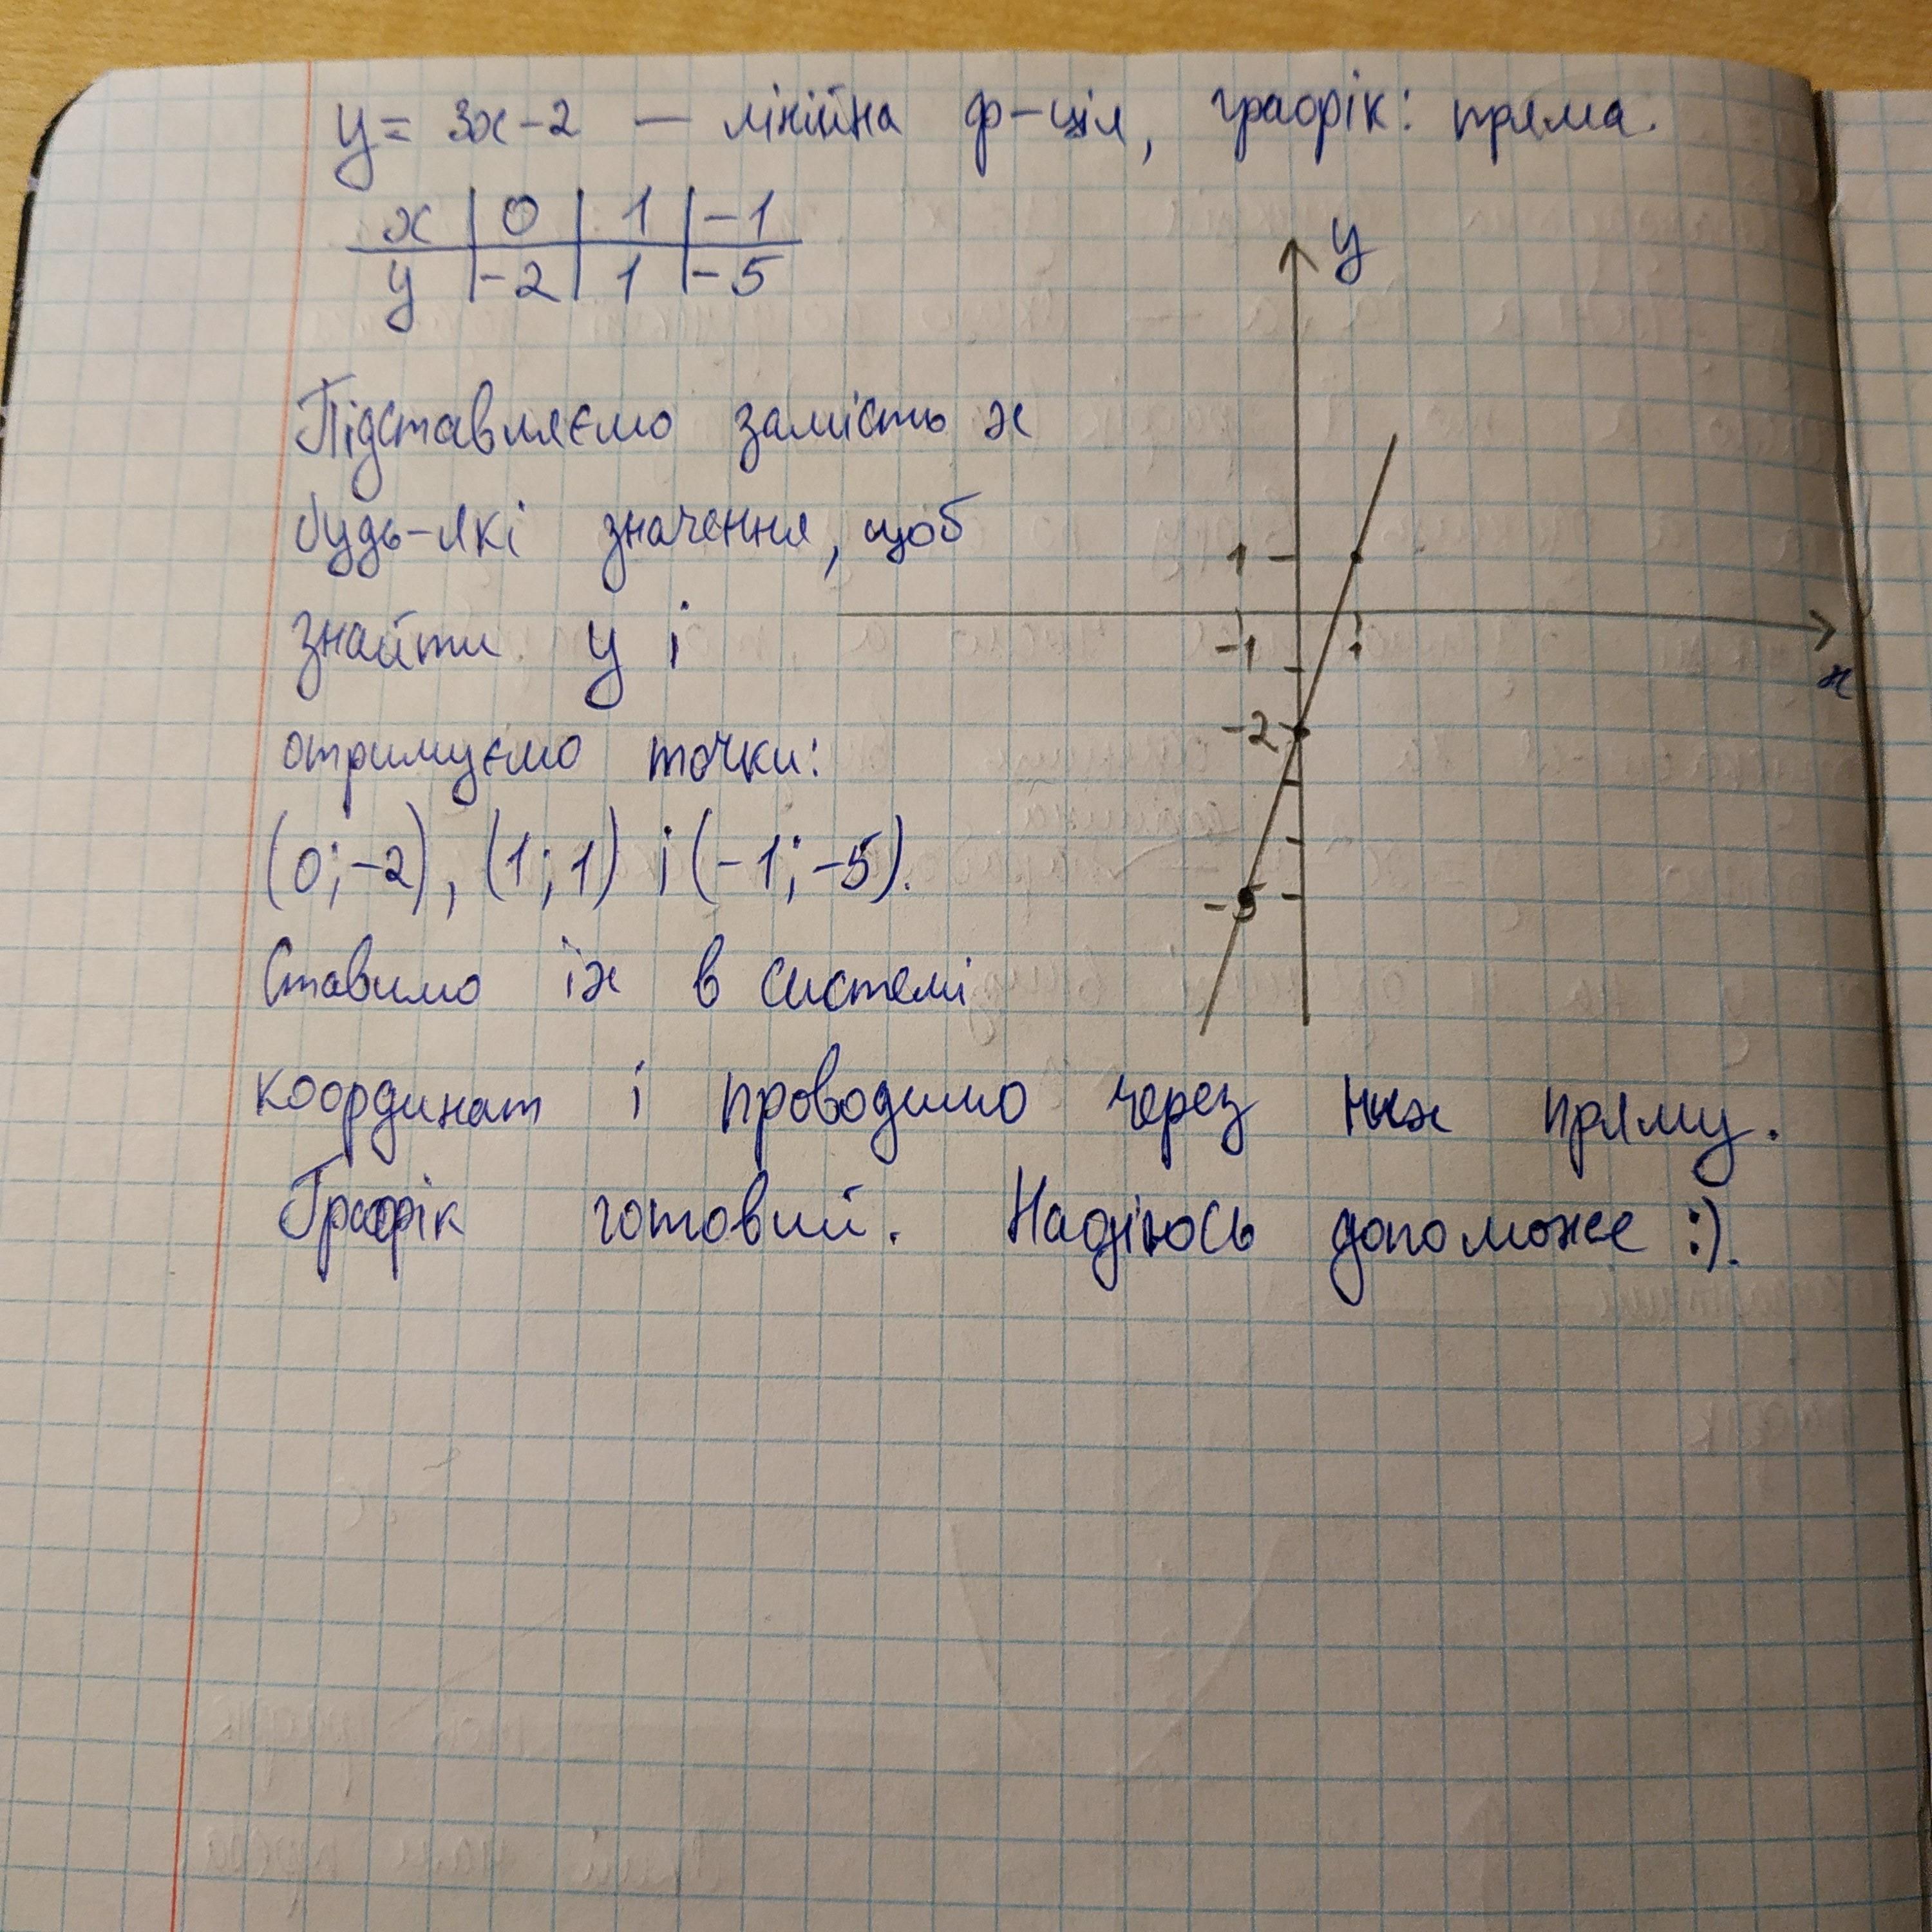 y = 3x - 2 — лінійна ф-ція, графік: пряма.
x | 0 | 1 | -1
y | -2 | 1 | -5
y
Підставляємо замість x
будь-які значення, щоб
1
знайти y і
-1 1
x
отримуємо точки:
-2
(0; -2), (1; 1) і (-1; -5).
-5
Ставимо їх в системі
координат і проводимо через них пряму.
Графік готовий. Надіюсь допоможе :).